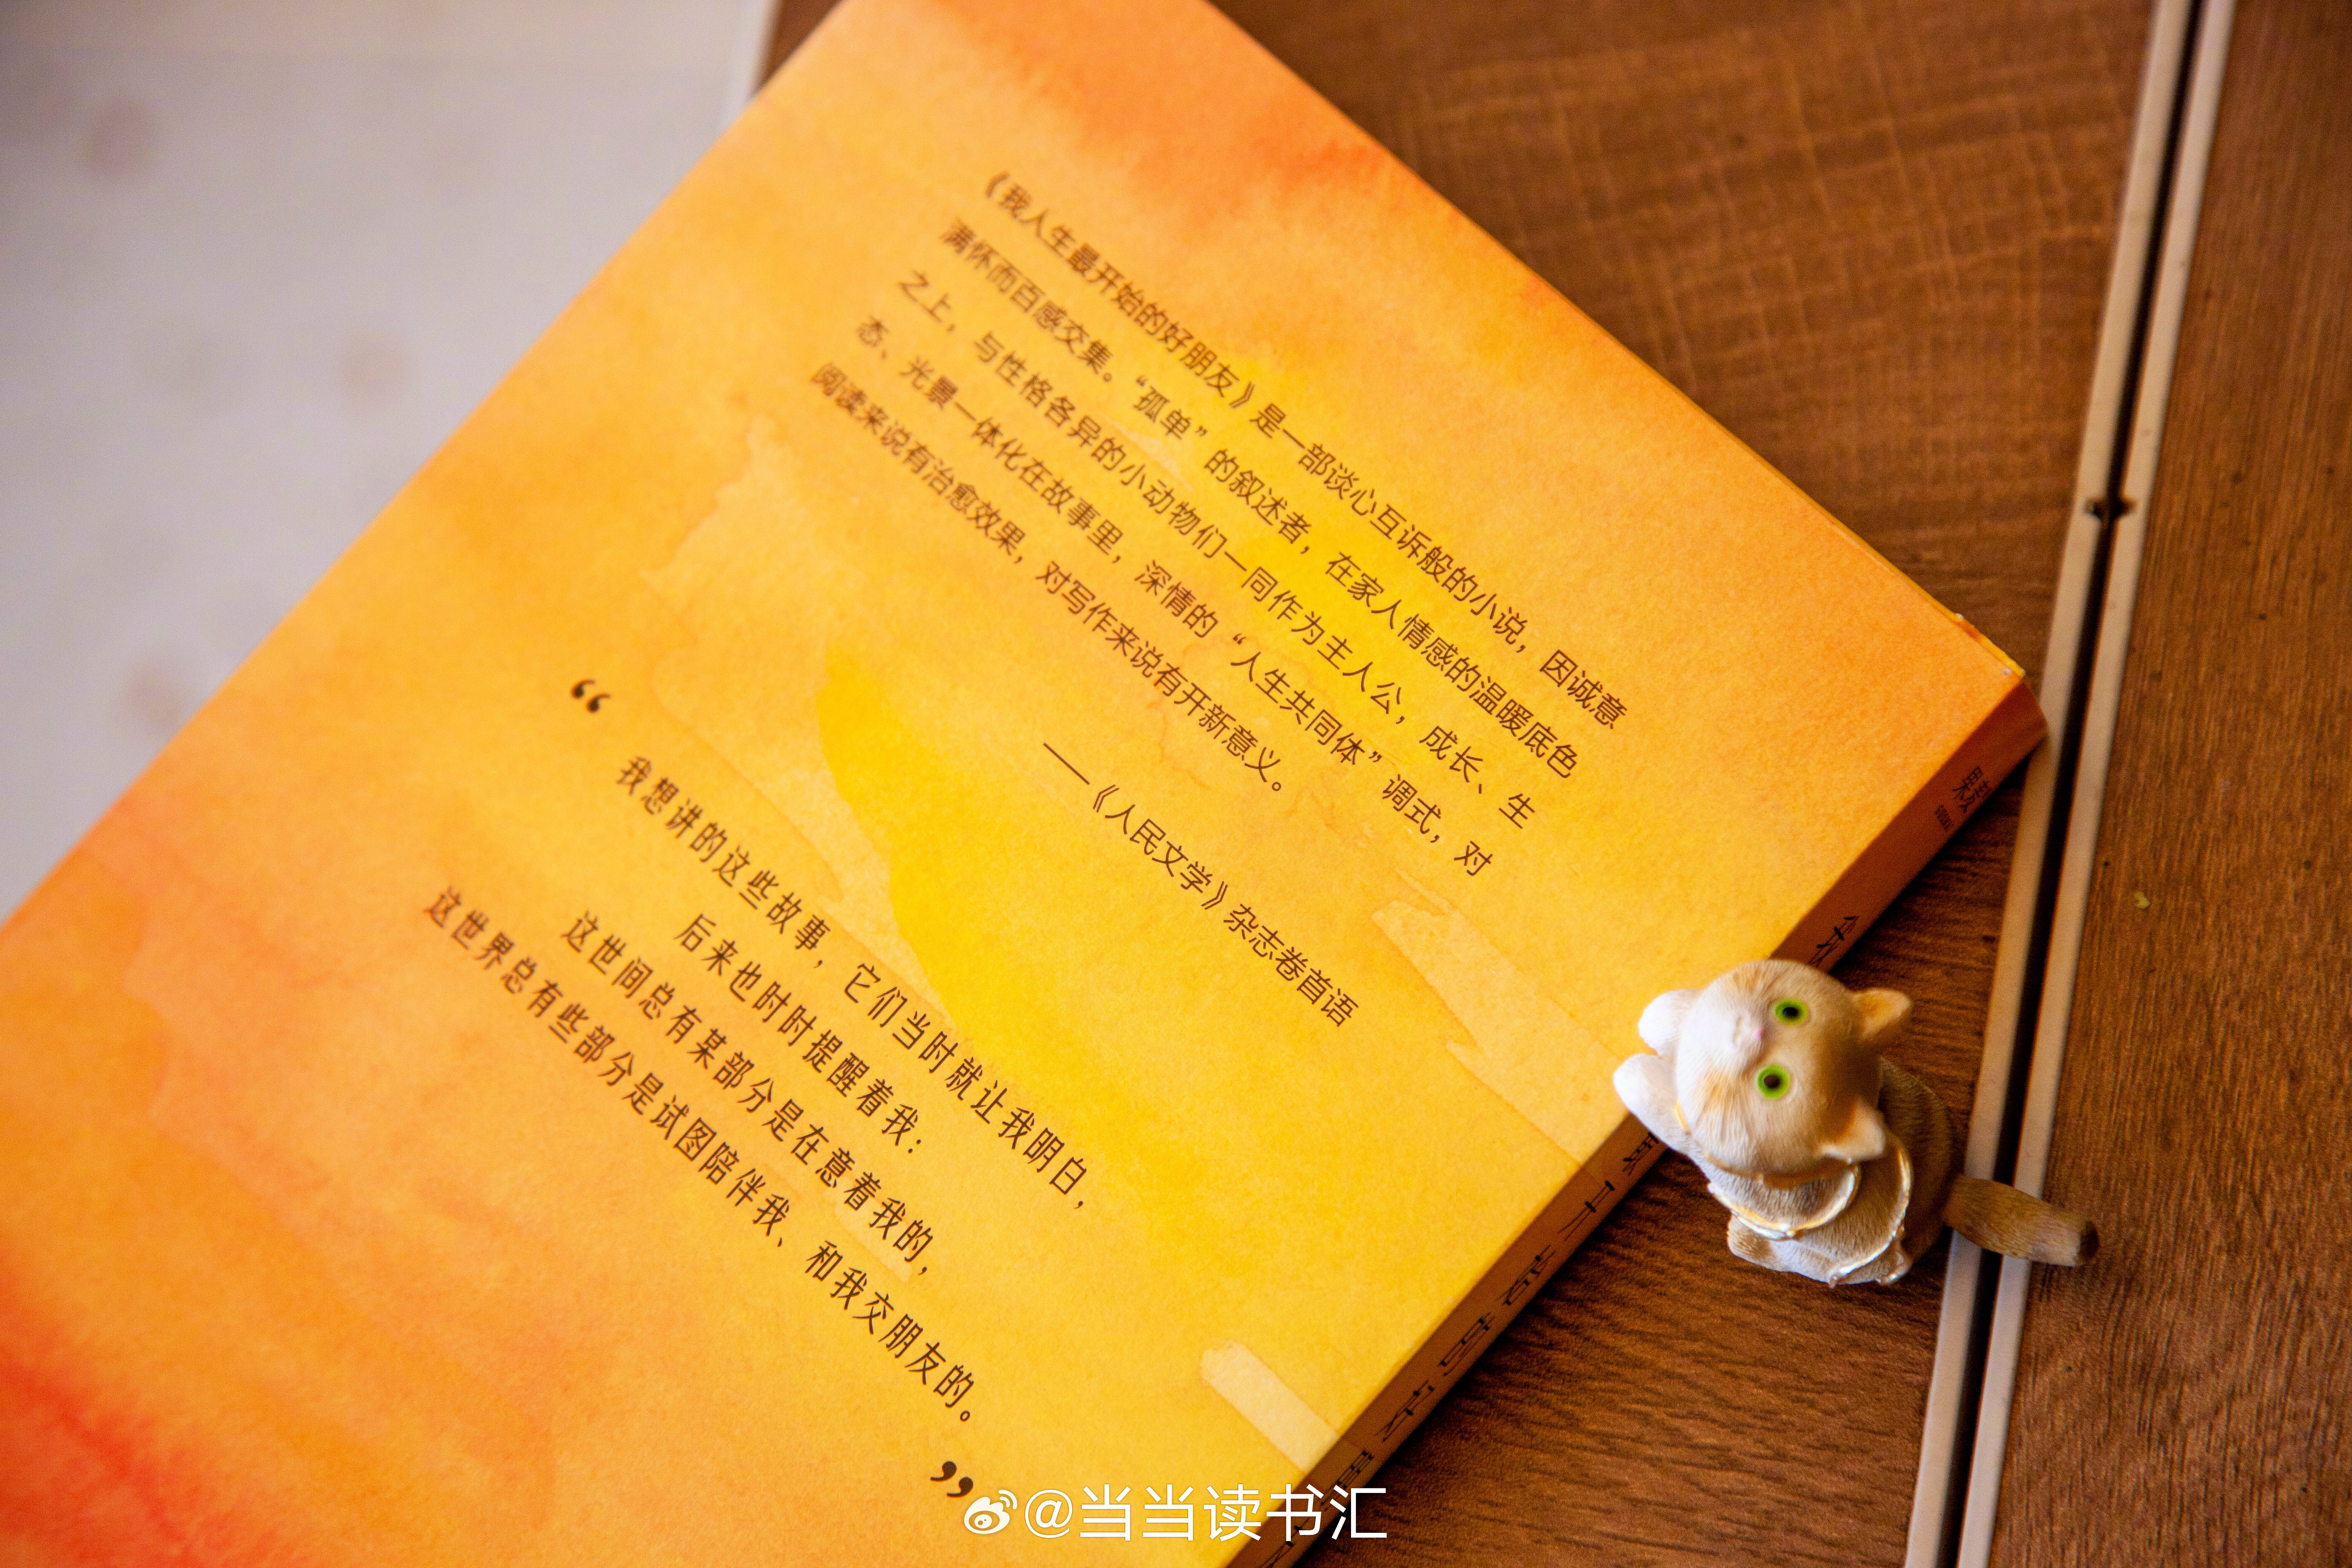 《我人生最开始的好朋友》是一部谈心互诉般的小说，因诚意
满怀而百感交集。“孤单”的叙述者，在家人情感的温暖底色
之上，与性格各异的小动物们一同作为主人公，成长、生
态、光景一体化在故事里，深情的“人生共同体”调式，对
阅读来说有治愈效果，对写作来说有开新意义。
——《人民文学》杂志卷首语
“
我想讲的这些故事，它们当时就让我明白，
后来也时时提醒着我：
这世间总有某部分是在意着我的，
这世界总有些部分是试图陪伴我、和我交朋友的。
”
@当当读书汇